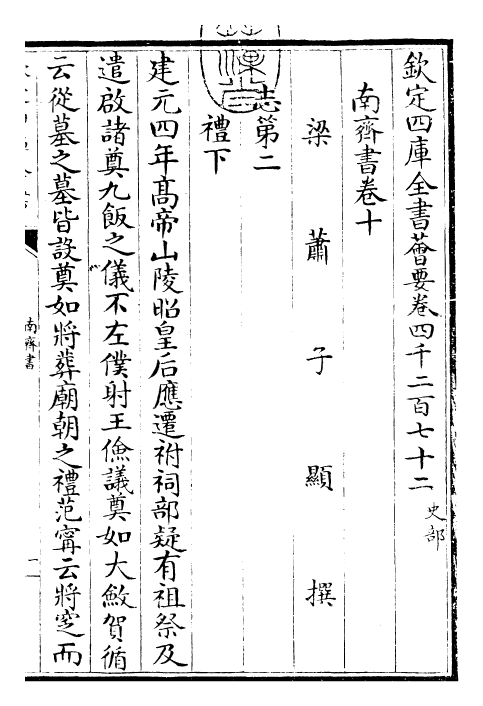 欽定四庫全書薈要卷四千二百七十二 史部
南齊書卷十
梁蕭子顯撰
志第二
禮下
建元四年髙帝山陵昭皇后應遷祔祠部疑有祖祭及
遣啟諸奠九飯之儀不左僕射王儉議奠如大斂賀循
云從墓之墓皆設奠如將葬廟朝之禮范甯云將窆而
南齊書